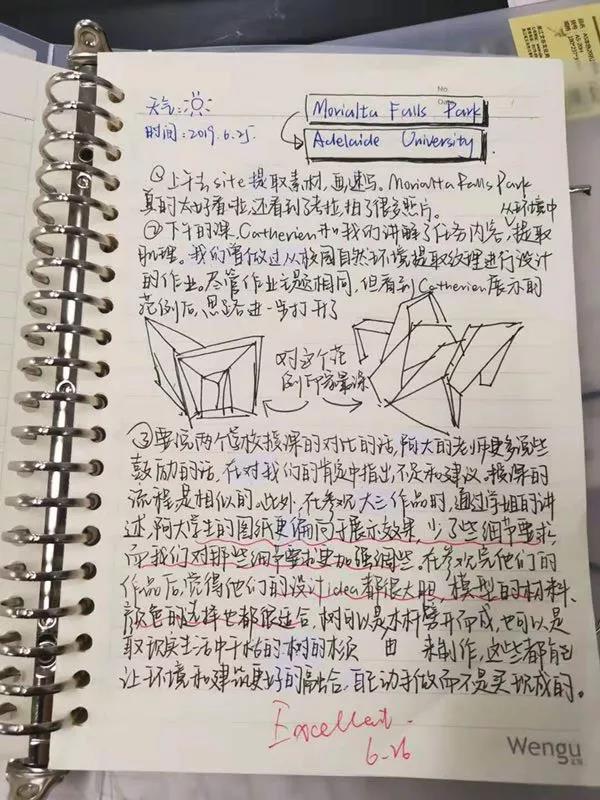 No.
天气:
Morialta Falls Park
时间:2019.6.25
Adelaide University
①上午去site提取素材,画速写。Morialta Falls Park
真的太好看啦,还看到了考拉,拍了很多照片。
从环境中
②下午的课,Catherien为我们讲解了任务内容,提取
肌理。我们曾做过从校园自然环境提取纹理进行设计
的作业。尽管作业主题相同,但看到Catherien展示的
范例后,思路进一步打开了
对这个范
例印象最深
③要说两个学校授课的对比的话,阿大的老师更多说些
鼓励的话,在对我们的肯定中指出不足和建议。授课的
流程是相似的。此外,在参观大三作品时,通过学姐的讲
述,阿大学生的图纸更偏向于展示效果,少了些细节要求,
而我们对那些细节要求更加强调些。在参观完他们的
作品后,觉得他们的设计idea都很大胆,模型的材料、
颜色的选择也都很适合,树可以是木杆劈开而成,也可以是
取现实生活中干枯的树的 来制作,这些都能
让环境和建筑更好的融合,自己动手做而不是买现成的。
Excellent.
6.26
Wengu